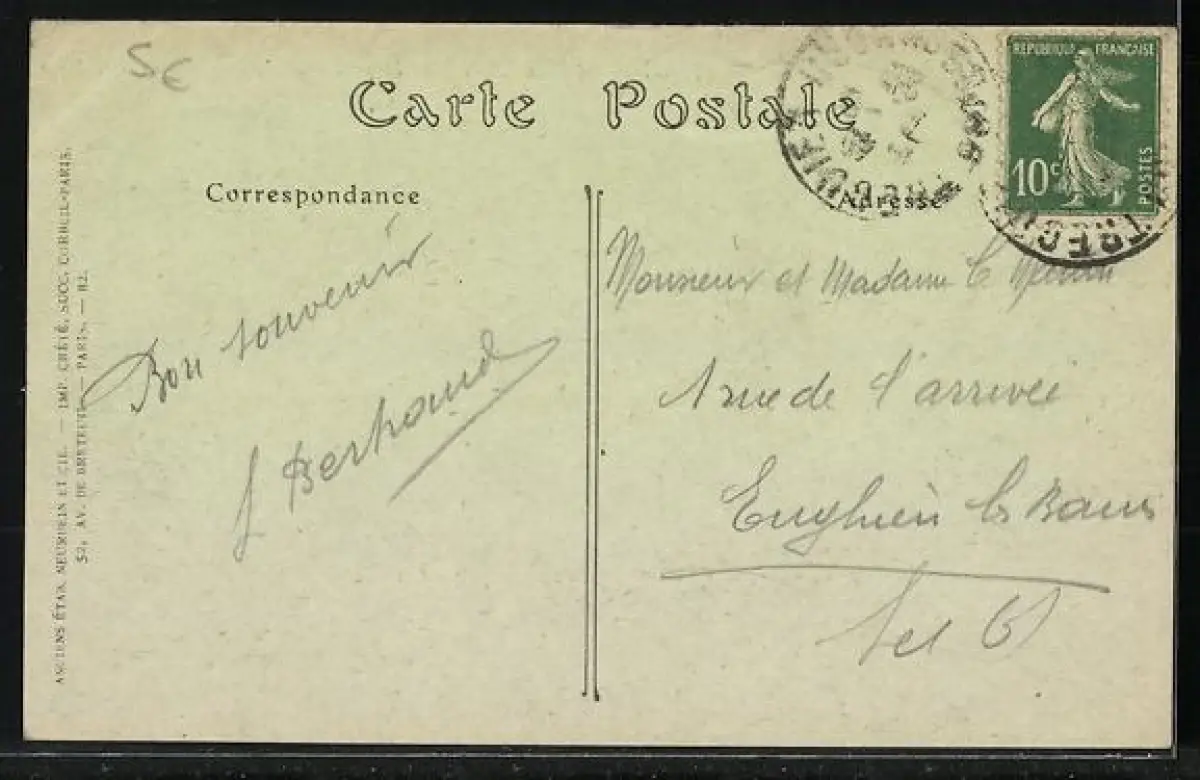 5€
Carte Postale
RÉPUBLIQUE FRANÇAISE
10c
POSTES
Correspondance
Adresse
Bon souvenir
J Bertrand
Monsieur et Madame le
1 rue de l'arrivée
Enghien les Bains
S et O
ANCIENS ÉTAB. NEURDEIN ET CIE. — IMP. CRÉTÉ, SUCC. CORBEIL-PARIS.
52, AV. DE BRETEUIL — PARIS. — H2.